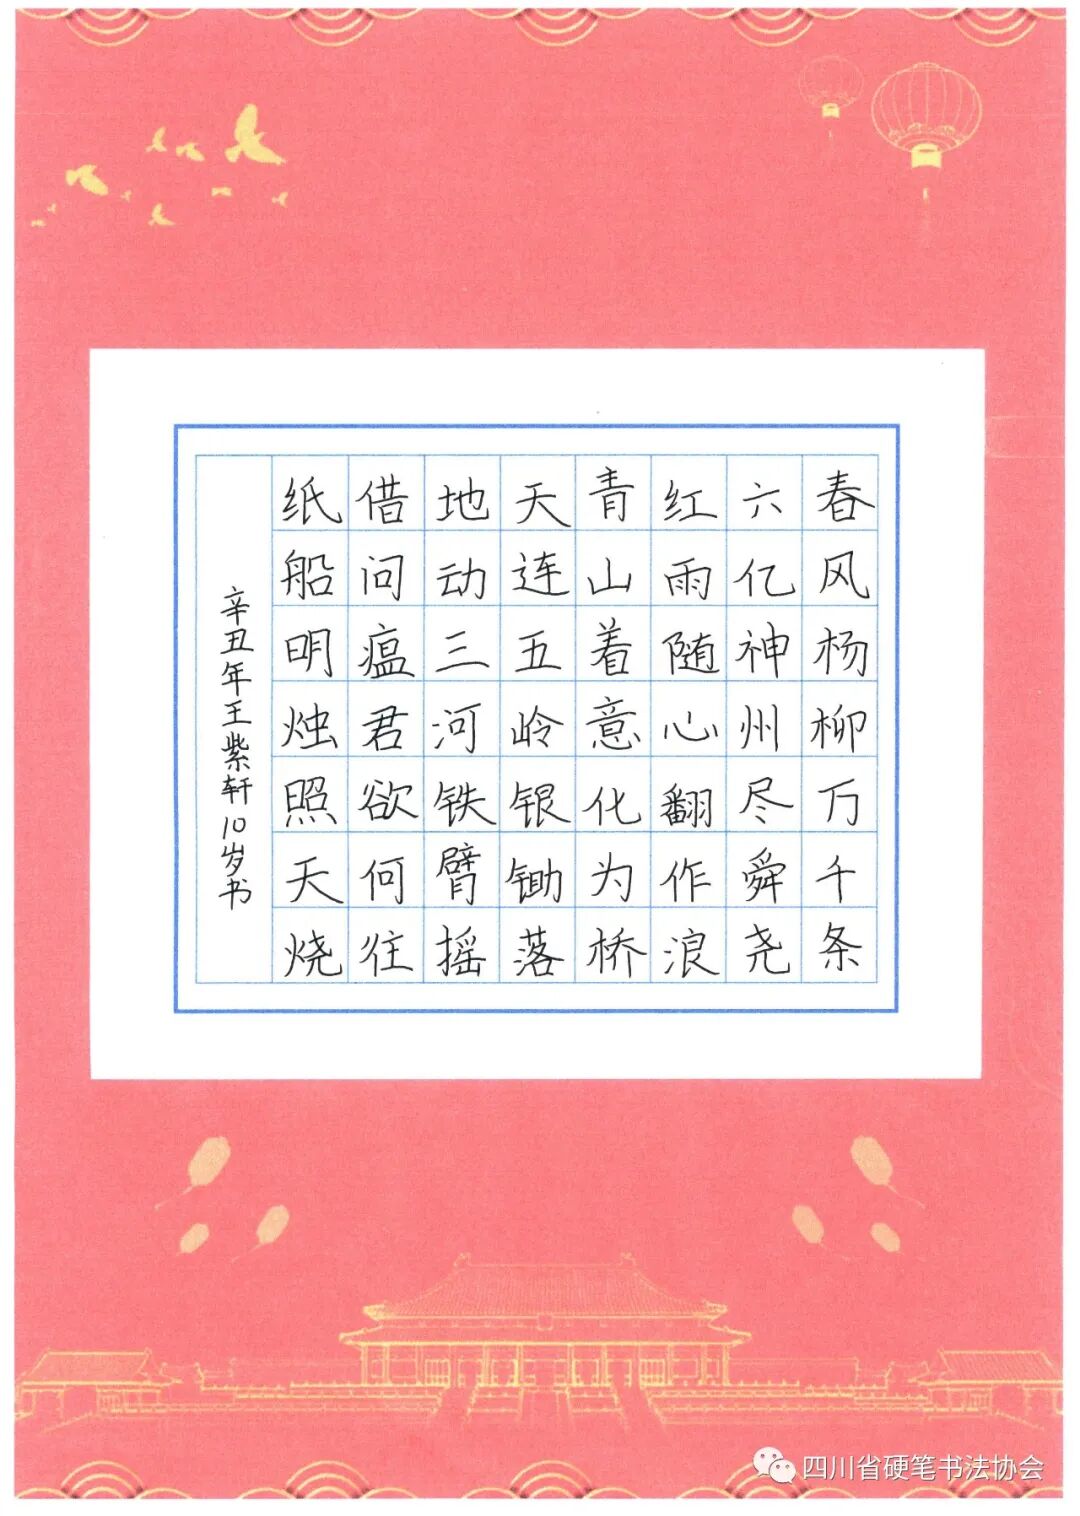 春风杨柳万千条
六亿神州尽舜尧
红雨随心翻作浪
青山着意化为桥
天连五岭银锄落
地动三河铁臂摇
借问瘟君欲何往
纸船明烛照天烧
辛丑年王紫轩10岁书
四川省硬笔书法协会